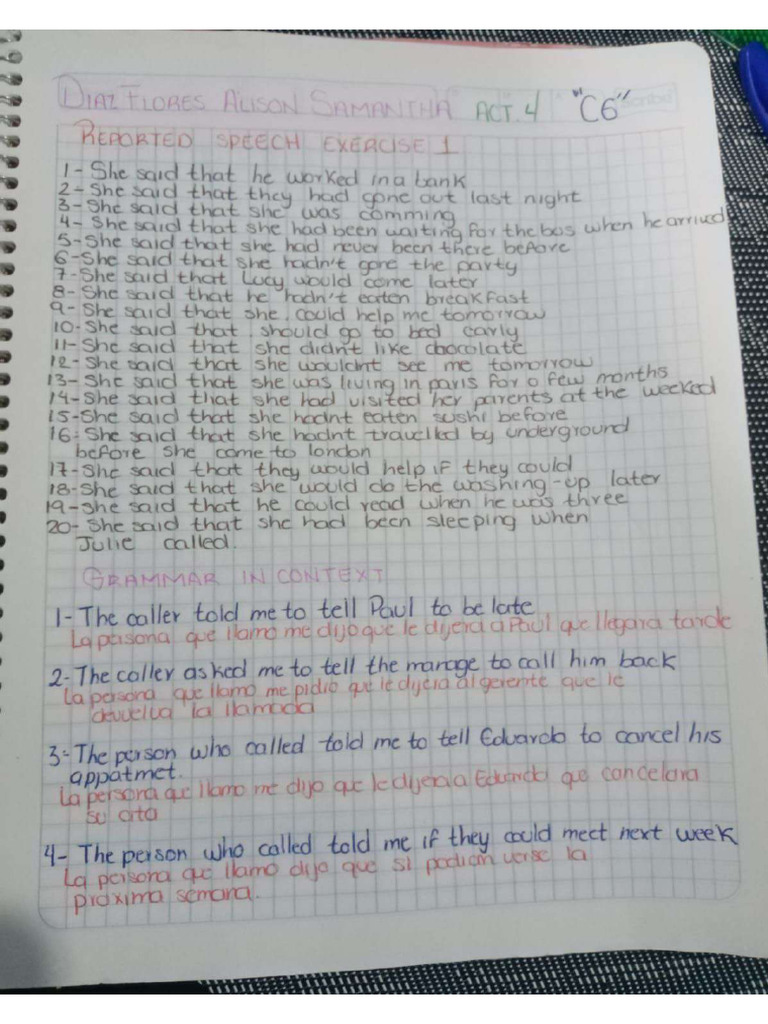 DIAZ FLORES ALISON SAMANTHA ACT. 4 "C6"
REPORTED SPEECH EXERCISE 1
1- She said that he worked in a bank
2- She said that they had gone out last night
3- She said that she was comming
4- She said that she had been waiting for the bus when he arrived
5- She said that she had never been there before
6- She said that she hadn't gone the party
7- She said that Lucy would come later
8- She said that he hadn't eaten breakfast
9- She said that she could help me tomorrow
10- She said that should go to bed early
11- She said that she didn't like chocolate
12- She said that she wouldnt see me tomorrow
13- She said that she was living in paris for a few months
14- She said that she had visited her parents at the weeked
15- She said that she hadnt eaten sushi before
16: She said that she hadnt travelled by underground
before she come to london
17- She said that they would help if they could
18- She said that she would do the washing-up later
19- She said that he could read when he was three
20- She said that she had been sleeping when
Julie called.
GRAMMAR IN CONTEXT
1- The caller told me to tell Paul to be late
La persona que llamo me dijo que le dijera a Paul que llegara tarde
2- The caller asked me to tell the manage to call him back
La persona que llamo me pidio que le dijera al gerente que le
devuelva la llamada
3- The person who called told me to tell Eduardo to cancel his
appatmet.
La persona que llamo me dijo que le dijera a Eduardo que cancelara
su cita
4- The person who called told me if they could meet next week
La persona que llamo dijo que si podian verse la
proxima semana.